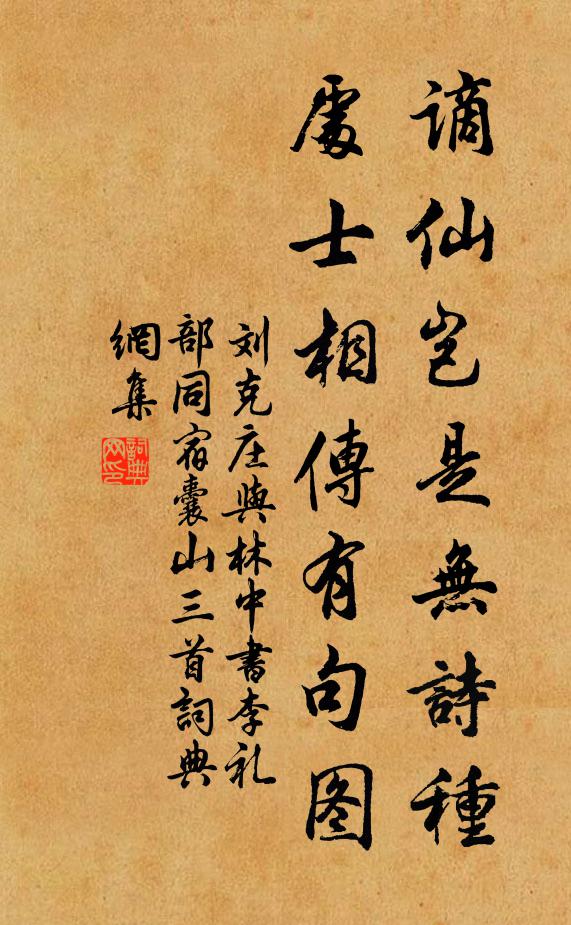 謫仙岂是無詩種
處士相傳有句图
刘克庄與林中書李礼
部同宿囊山三首詞典
網集
詞典
网印